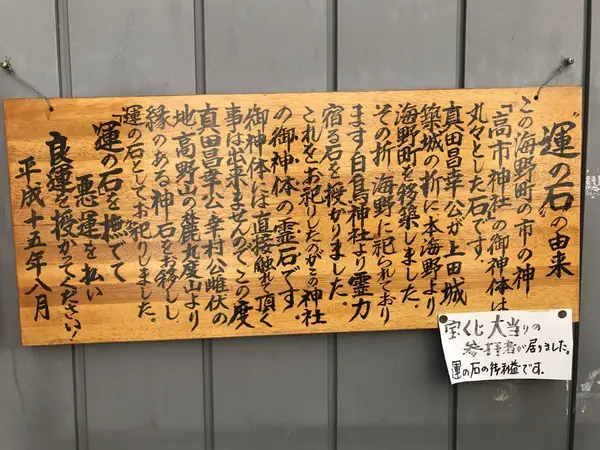 〝運の石〟の由来
この海野町の市の神
「高市神社」の御神体は
丸々とした石です。
真田昌幸公が上田城
築城の折に本海野より
海野町を移築しました。
その折、海野に祀られており
ます白鳥神社より霊力
宿る石を授かりました。
これをお祀りしたのがこの神社
の御神体の霊石です。
御神体には直接触れて頂く
事は出来ませんのでこの度
真田昌幸公、幸村公雌伏の
地、高野山の麓九度山より
縁のある神石をお移しし
運の石としてお祀りしました。
〝運の石を撫でて
悪運を払い
良運を授かってください！
平成十五年八月
宝くじ大当りの
参拝者が居りました。
運の石の御利益です。